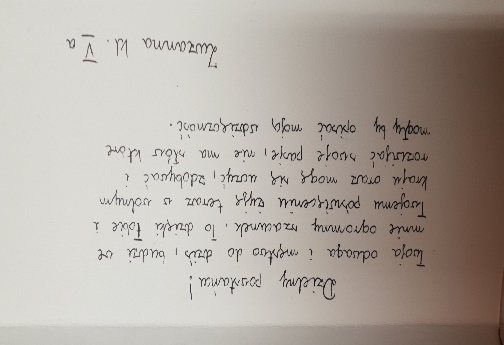 Dzielny powstańcu!
Twoja odwaga i męstwo do dziś, budzi we
mnie ogromny szacunek. To dzięki Tobie i
Twojemu poświęceniu żyję teraz w wolnym
kraju oraz mogę się uczyć, zdobywać i
rozwijać swoje pasje, nie ma słów które
mogły by opisać moją wdzięczność.
Zuzanna kl. V a